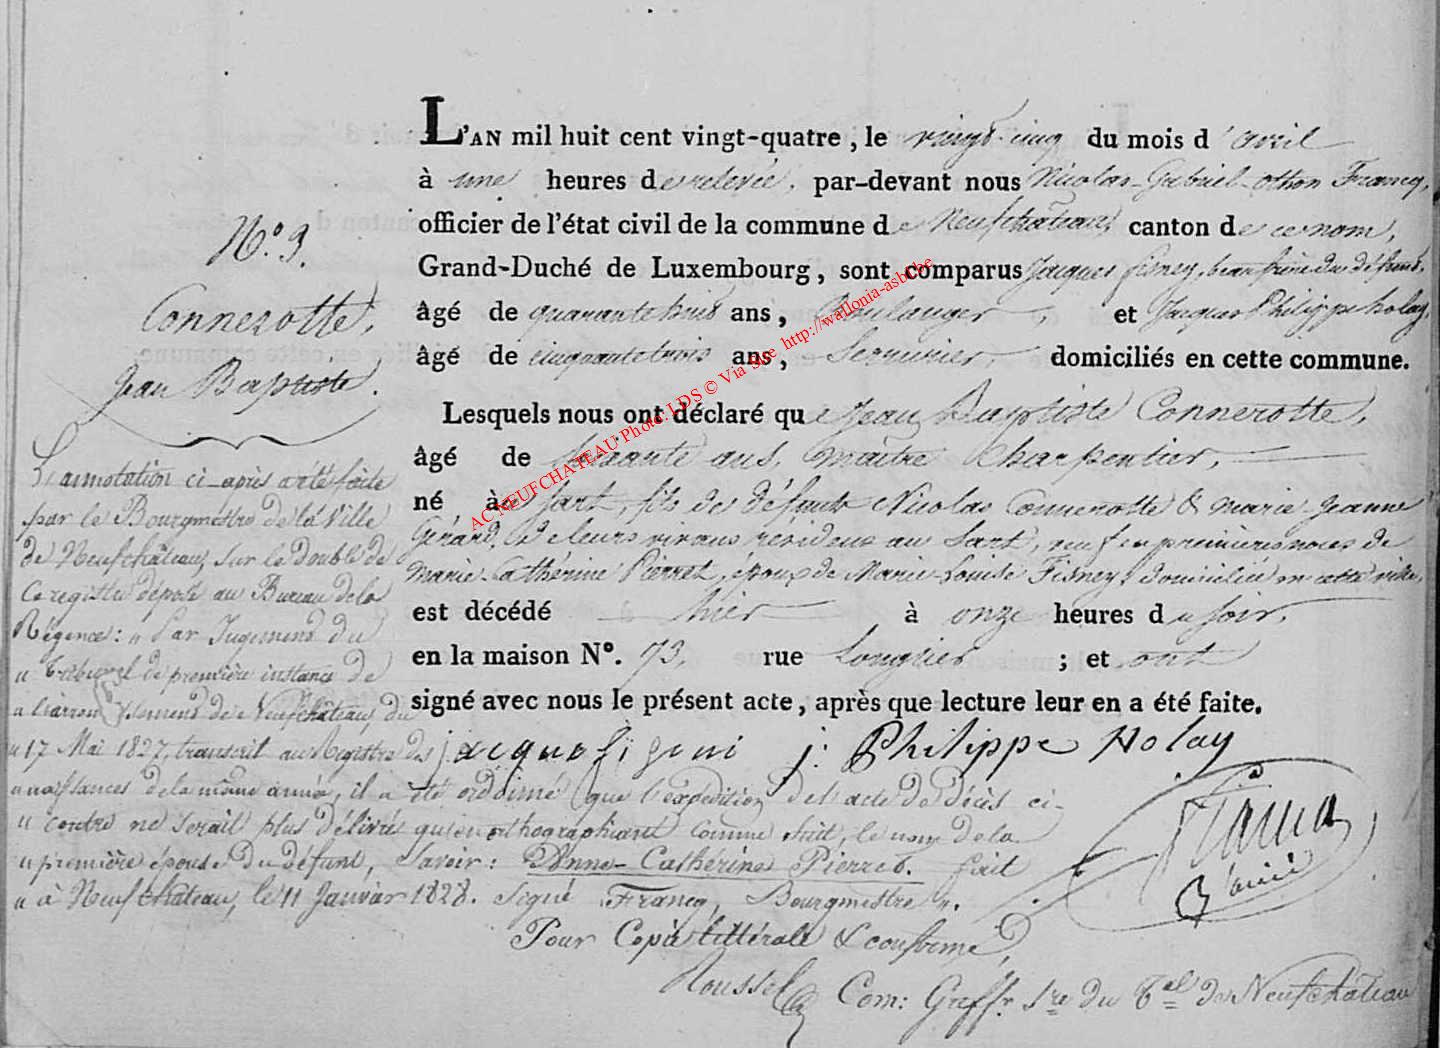 N.º 9.
Connerotte,
Jean Baptiste.
L'AN mil huit cent vingt-quatre, le vingt-cinq du mois d'avril
à une heures de relevée, par-devant nous Nicolas-Gabriel-Othon Francq,
officier de l'état civil de la commune de Neufchâteau, canton de ce nom,
Grand-Duché de Luxembourg, sont comparus Jacques Fisney, beau frère du défunt,
âgé de quarante trois ans, Boulanger, et Jacques Philippe holay,
âgé de cinquante trois ans, Serrurier, domiciliés en cette commune.
Lesquels nous ont déclaré que Jean Baptiste Connerotte,
âgé de soixante ans, maître Charpentier,
né à Sart, fils de défunts Nicolas Connerotte & Marie-Jeanne
Gérard, de leurs vivans résidens au Sart, veuf en premières noces de
Marie-Cathérine Pierret, époux de Marie-Louise Fisney, domiciliée en cette ville,
est décédé hier à onze heures du soir,
en la maison Nº. 73, rue Longlier ; et ont
signé avec nous le présent acte, après que lecture leur en a été faite.
jacque figeni j: Philippe Holay
L'annotation ci-après a été faite
par le Bourgmestre de la Ville
de Neufchâteau, sur le double de
ce registre déposé au Bureau de la
Régence: „ Par Jugement du
„ Tribunal de première instance de
„ l'arrondissement de Neufchâteau, du
„ 17 Mai 1827, transcrit au Registre des
„ naissances de la même année, il a été ordonné que l'expédition de l'acte de décès ci-
„ contre ne serait plus délivrée qu'en orthographiant comme suit, le nom de la
„ première épouse du défunt, Savoir: Anne-Cathérine Pierret. fait
„ à Neufchâteau, le 11 Janvier 1828. signé Francq, Bourgmestre „.
Pour Copie littérale & conforme,
Roussel Com: Greff.r s.re du T.el de Neufchâteau
AC NEUFCHATEAU Photo: LDS © Via See http://wallonia-asbl.be